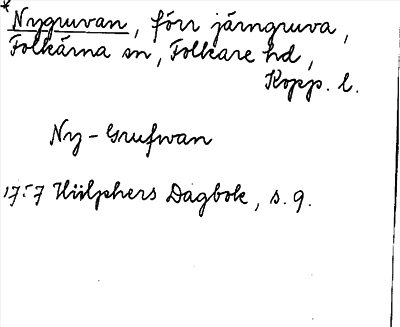 * Nygruvan, förr järngruva,
Folkärna sn, Folkare hd,
Kopp. l.
Ny-Grufwan
1757 Hülphers Dagbok, s. 9.